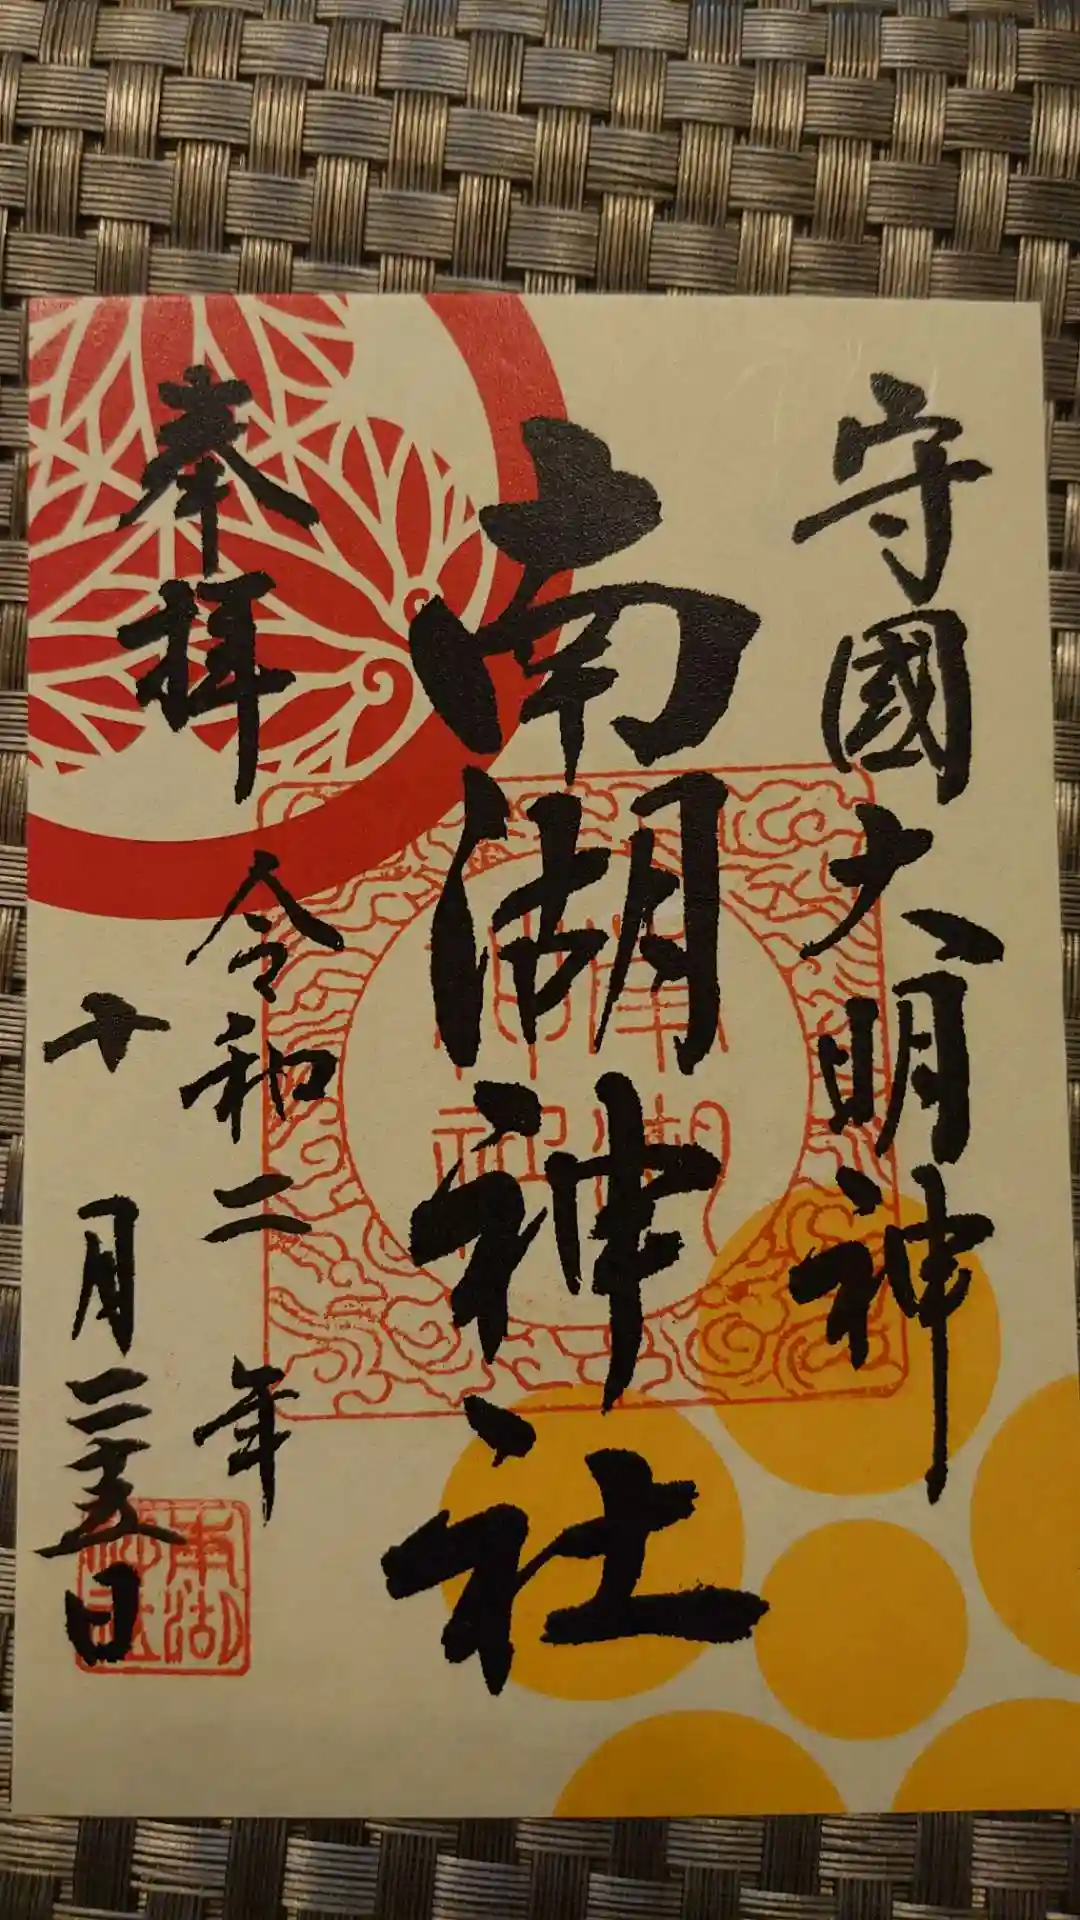 守國大明神
南湖神社
奉拝
令和二年
十月二十五日
南湖神社
南湖神社